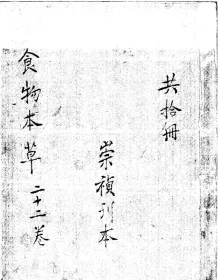 共拾冊
崇禎刊本
食物本草二十二卷